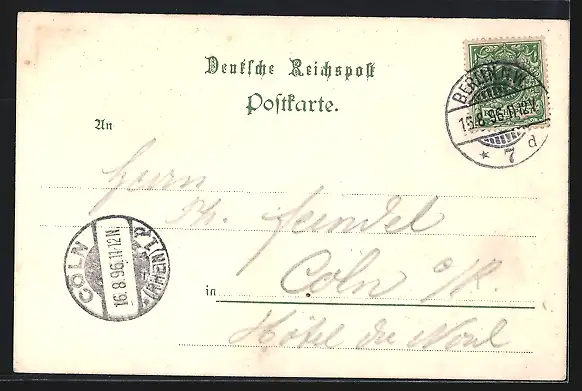 Deutsche Reichspost
Postkarte.
BERLIN N.W.
15.8.96.11-12V.
* 7 d
An
Herrn
Th. Heindel
CÖLN
16.8.96.11-12N.
(RHEIN)
in Cöln a/R.
Hôtel du Nord